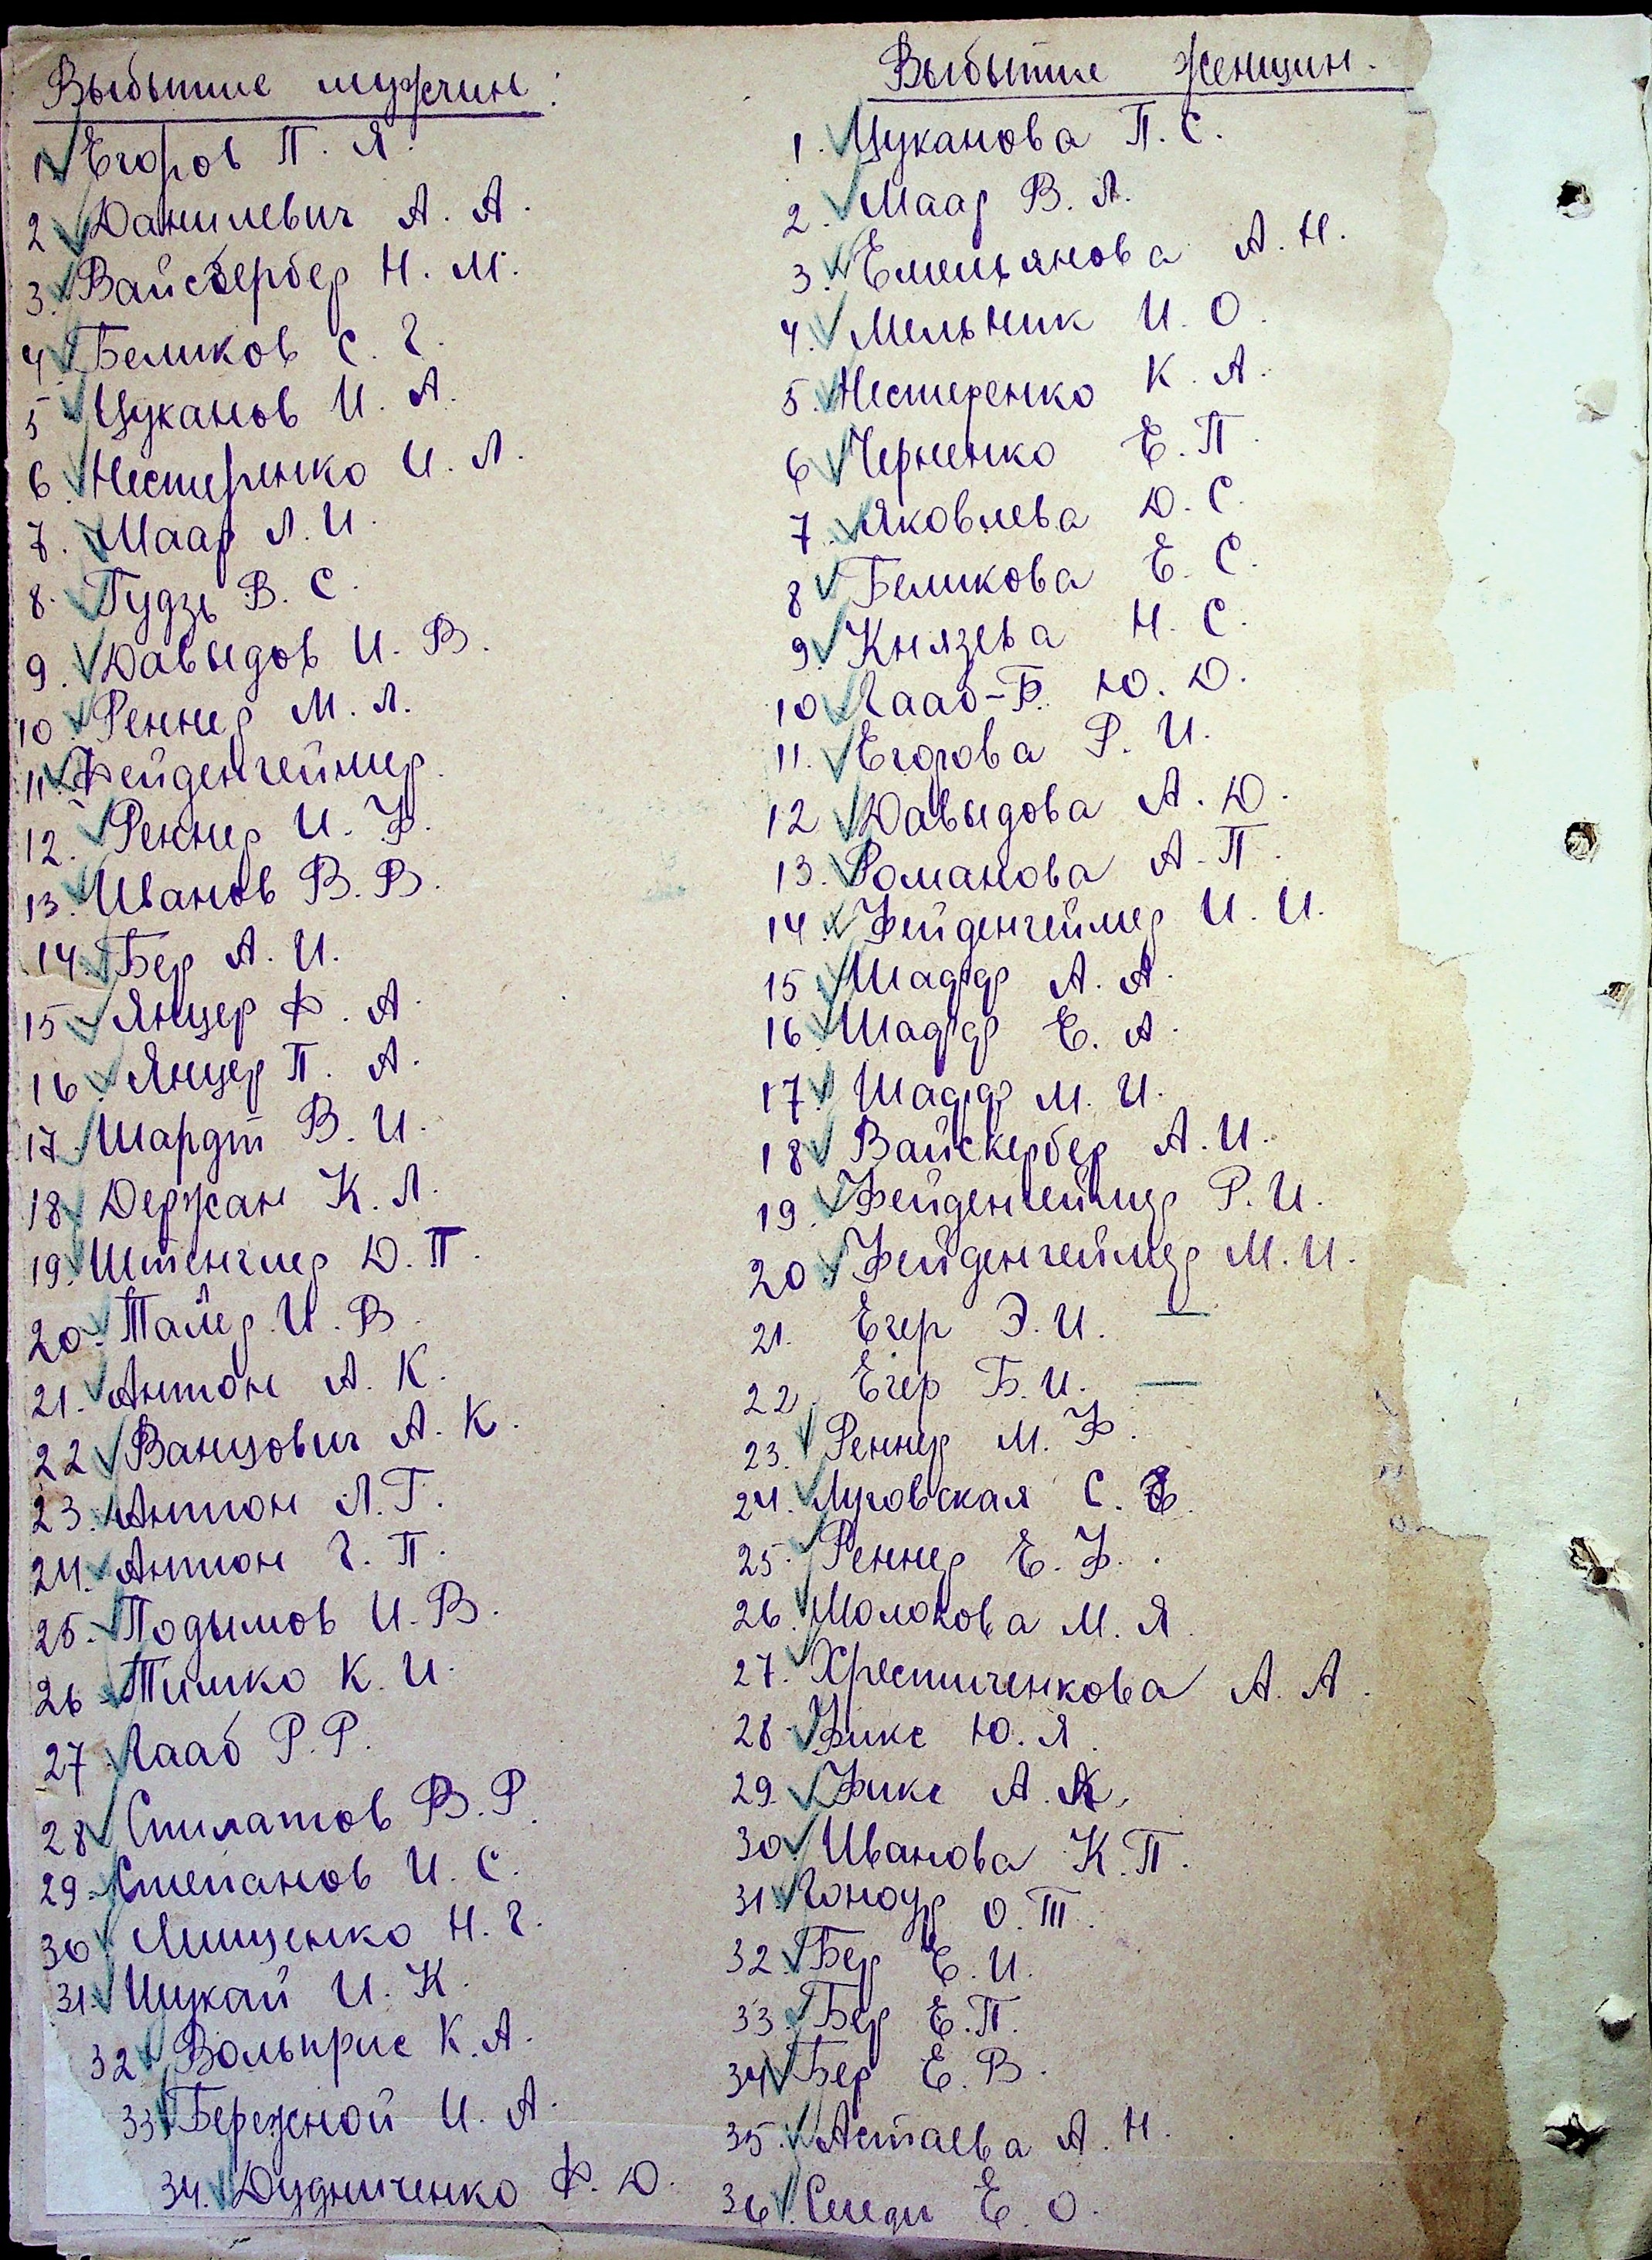 Выбытие мужчин:
1. Егоров П. Я.
2 Данилевич А. А.
3. Вайскербер Н. М.
4. Беликов С. Г.
5 Цуканов И. А.
6. Нестеренко И. Л.
7. Маар Л. И.
8. Гудзь В. С.
9. Давыдов И. В.
10. Реннер М. Л.
11. Фейденгеймер.
12. Реннер И. Ф.
13. Иванов В. В.
14. Бер А. И.
15. Янцер Ф. А.
16. Янцер П. А.
17. Шардт В. И.
18. Держан К. Л.
19. Штенглер D. П.
20. Талер И. В.
21. Антон А. К.
22 Ванцович А. К.
23. Антон Л. Г.
24. Антон Г. П.
25. Подымов И. В.
26 Тимко К. И.
27. Лааб Р. Р.
28 Стилатов В. Р.
29. Степанов И. С.
30. Лищенко Н. Г.
31. Шукай И. К.
32. Вольприс К. А.
33. Бережной И. А.
34. Дудниченко Ф. D.
Выбытие женщин.
1. Цуканова П. С.
2. Маар В. Л.
3. Емельянова А. Н.
4. Мельник И. О.
5. Нестеренко К. А.
6 Черненко Е. П.
7. Яковлева D. С.
8 Беликова Е. С.
9. Князева Н. С.
10 Лааб-Б. Ю. D.
11. Егорова Р. И.
12 Давыдова А. D.
13. Романова А. П.
14. Фейденгеймер И. И.
15. Шафф А. А.
16. Шафф Е. А.
17. Шафф М. И.
18 Вайскербер А. И.
19. Фейденгеймер Р. И.
20. Фейденгеймер М. И.
21. Егер Э. И. —
22. Егер Б. И. —
23. Реннер М. Ф.
24. Луговская С.
25. Реннер Е. Ф.
26. Молокова М. Я.
27. Хрестиченкова А. А.
28. Фикс Ю. Я.
29. Фикс А.
30 Иванова К. П.
31. О. Т.
32. Бер Е. И.
33. Бер Е. П.
34 Бер Е. В.
35. Астаева А. Н.
36. Е. О.